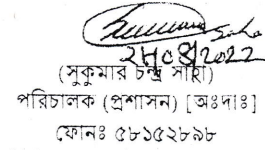 ২৮/০৪/2022
(সুকুমার চন্দ্র সাহা)
পরিচালক (প্রশাসন) [অঃদাঃ]
ফোনঃ ৫৮১৫২৮৯৮